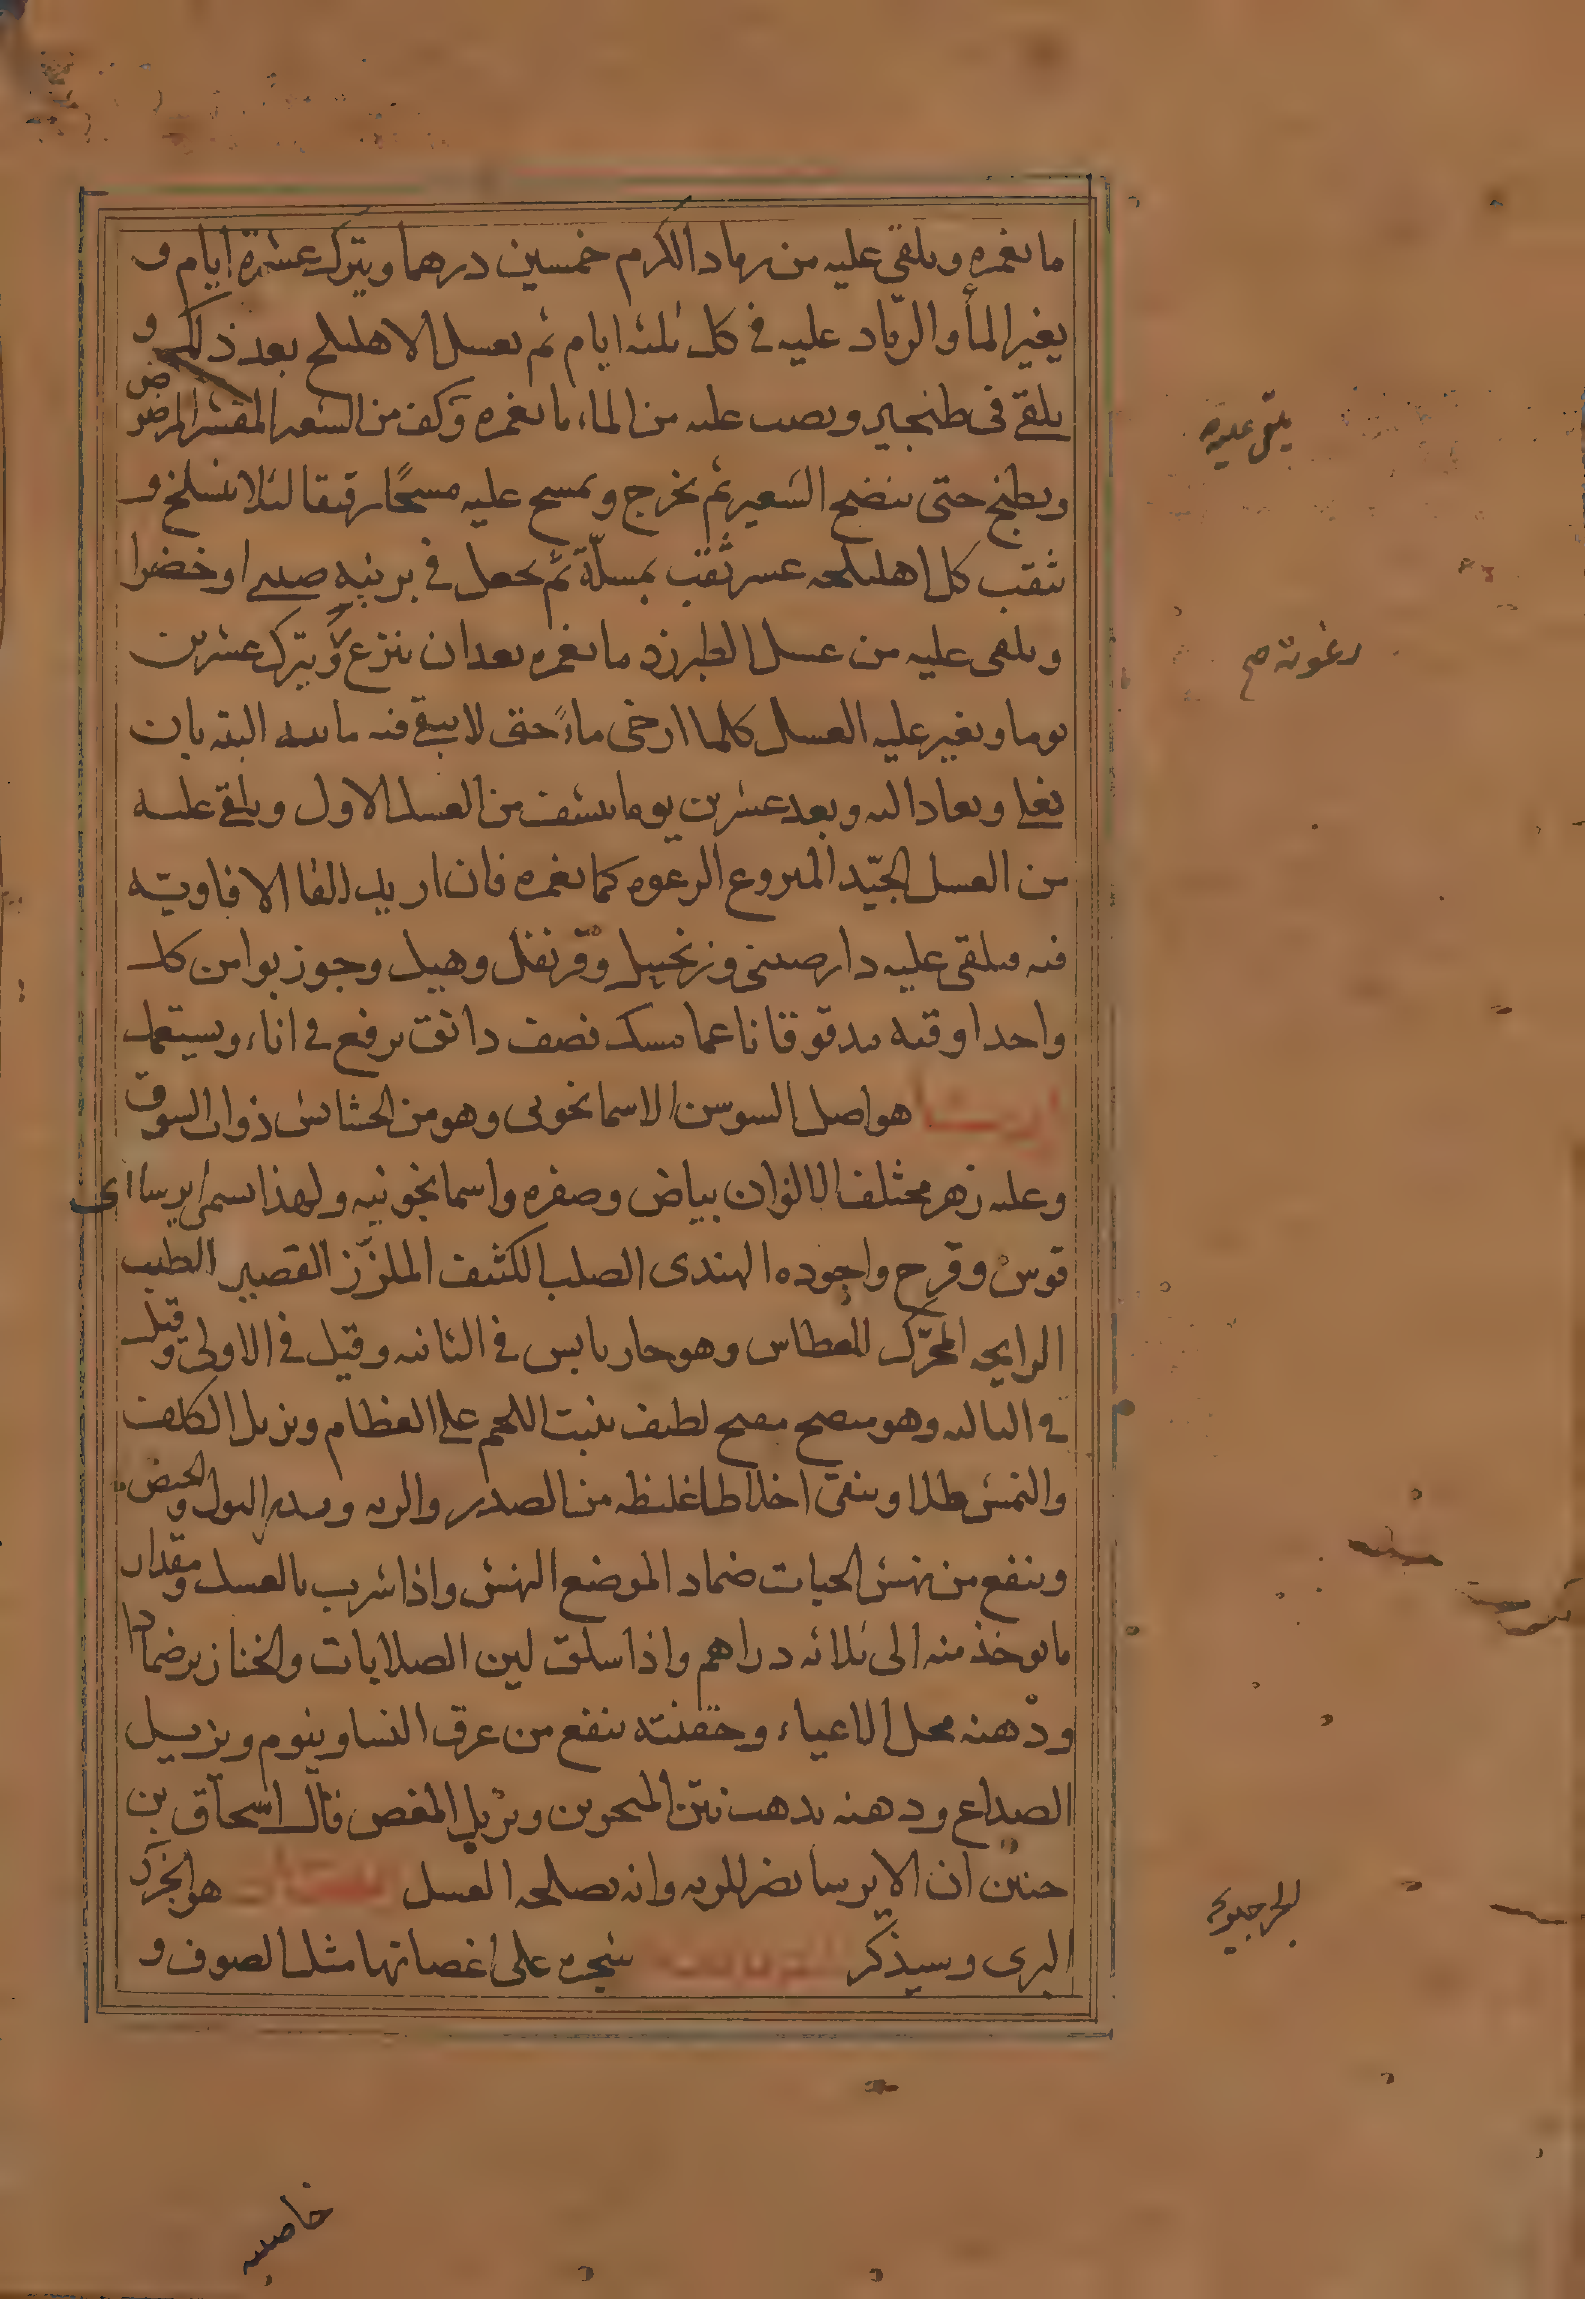 ما يغمره ويلقى عليه من رماد الكرم خمسين درهما ويترك عشرة ايام و
يغير المأ والرماد عليه في كل ثلثه ايام ثم يغسل الاهليلج بعد ذلك و
يلقى فى طنجير ويصب عليه من الماء ما يغمره وكف من الشعير المقشر المرضوض
ويطبخ حتى ينضج الشعير ثم يخرج ويمسح عليه مسحًا رقيقا لئلا ينسلخ و
يثقب كل اهليلجه عشر ثقب بمسلّة ثم يجعل في برنيه صينى او خضرا
ويلقى عليه من عسل الطبرزد ما يغمره بعد ان ينزع ويترك عشرين
يوما ويغير عليه العسل كلما ارخى ماءً حتى لا يبقى فيه ماييه البته بان
يغلى ويعاد اليه وبعد عشرين يوما ينشف من العسل الاول ويلقى عليه
من العسل الجيّد المنزوع الرغوه كما يغمره فان اريد القا الافاويه
فيه فيلقى عليه دارصينى وزنجبيل وقرنفل وهيل وجوزبوا من كل
واحد اوقيه مدقوقا ناعما مسك نصف دانق يرفع في اناء ويستعمل
ايرسا هو اصل السوسن الاسمانجونى وهو من الحشائش ذوات السوق
وعليه زهر مختلف الالوان بياض وصفره واسمانجونيه ولهذا سمى ايرسا اى
قوس وقزح واجوده الهندى الصلب الكثيف الملزّز القصير الطيب
الرايحه المحرّك للعطاس وهو حار يابس في الثانيه وقيل في الاولى وقيل
في الثالثه وهو منضج مفتح لطيف ينبت اللحم على العظام ويزيل الكلف
والنمش طلا وينقى اخلاطا غليظه من الصدر والريه ويدر البول والحيض
وينفع من نهش الحيات ضماد الموضع النهش واذا شرب بالعسل ومقدار
ما يوخذ منه الى ثلاثه دراهم واذا سلق لين الصلابات والخنازير ضمادا
ودهنه يحل الاعياء وحقنته ينفع من عرق النسا وينوم ويزيل
الصداع ودهنه يذهب نتن المنخرين ويزيل المغص قال اسحاق بن
حنين ان الايرسا يضر للريه وانه يصلحه العسل هو الجزر
البرى وسيذكر شجره على اغصانها مثل الصوف و
يلقى عليه
رغوته صح
خاصيه